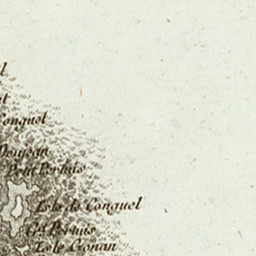 Conguel
Petit Pertuis
Isle de Conguel
Gd. Pertuis
Isle Conan